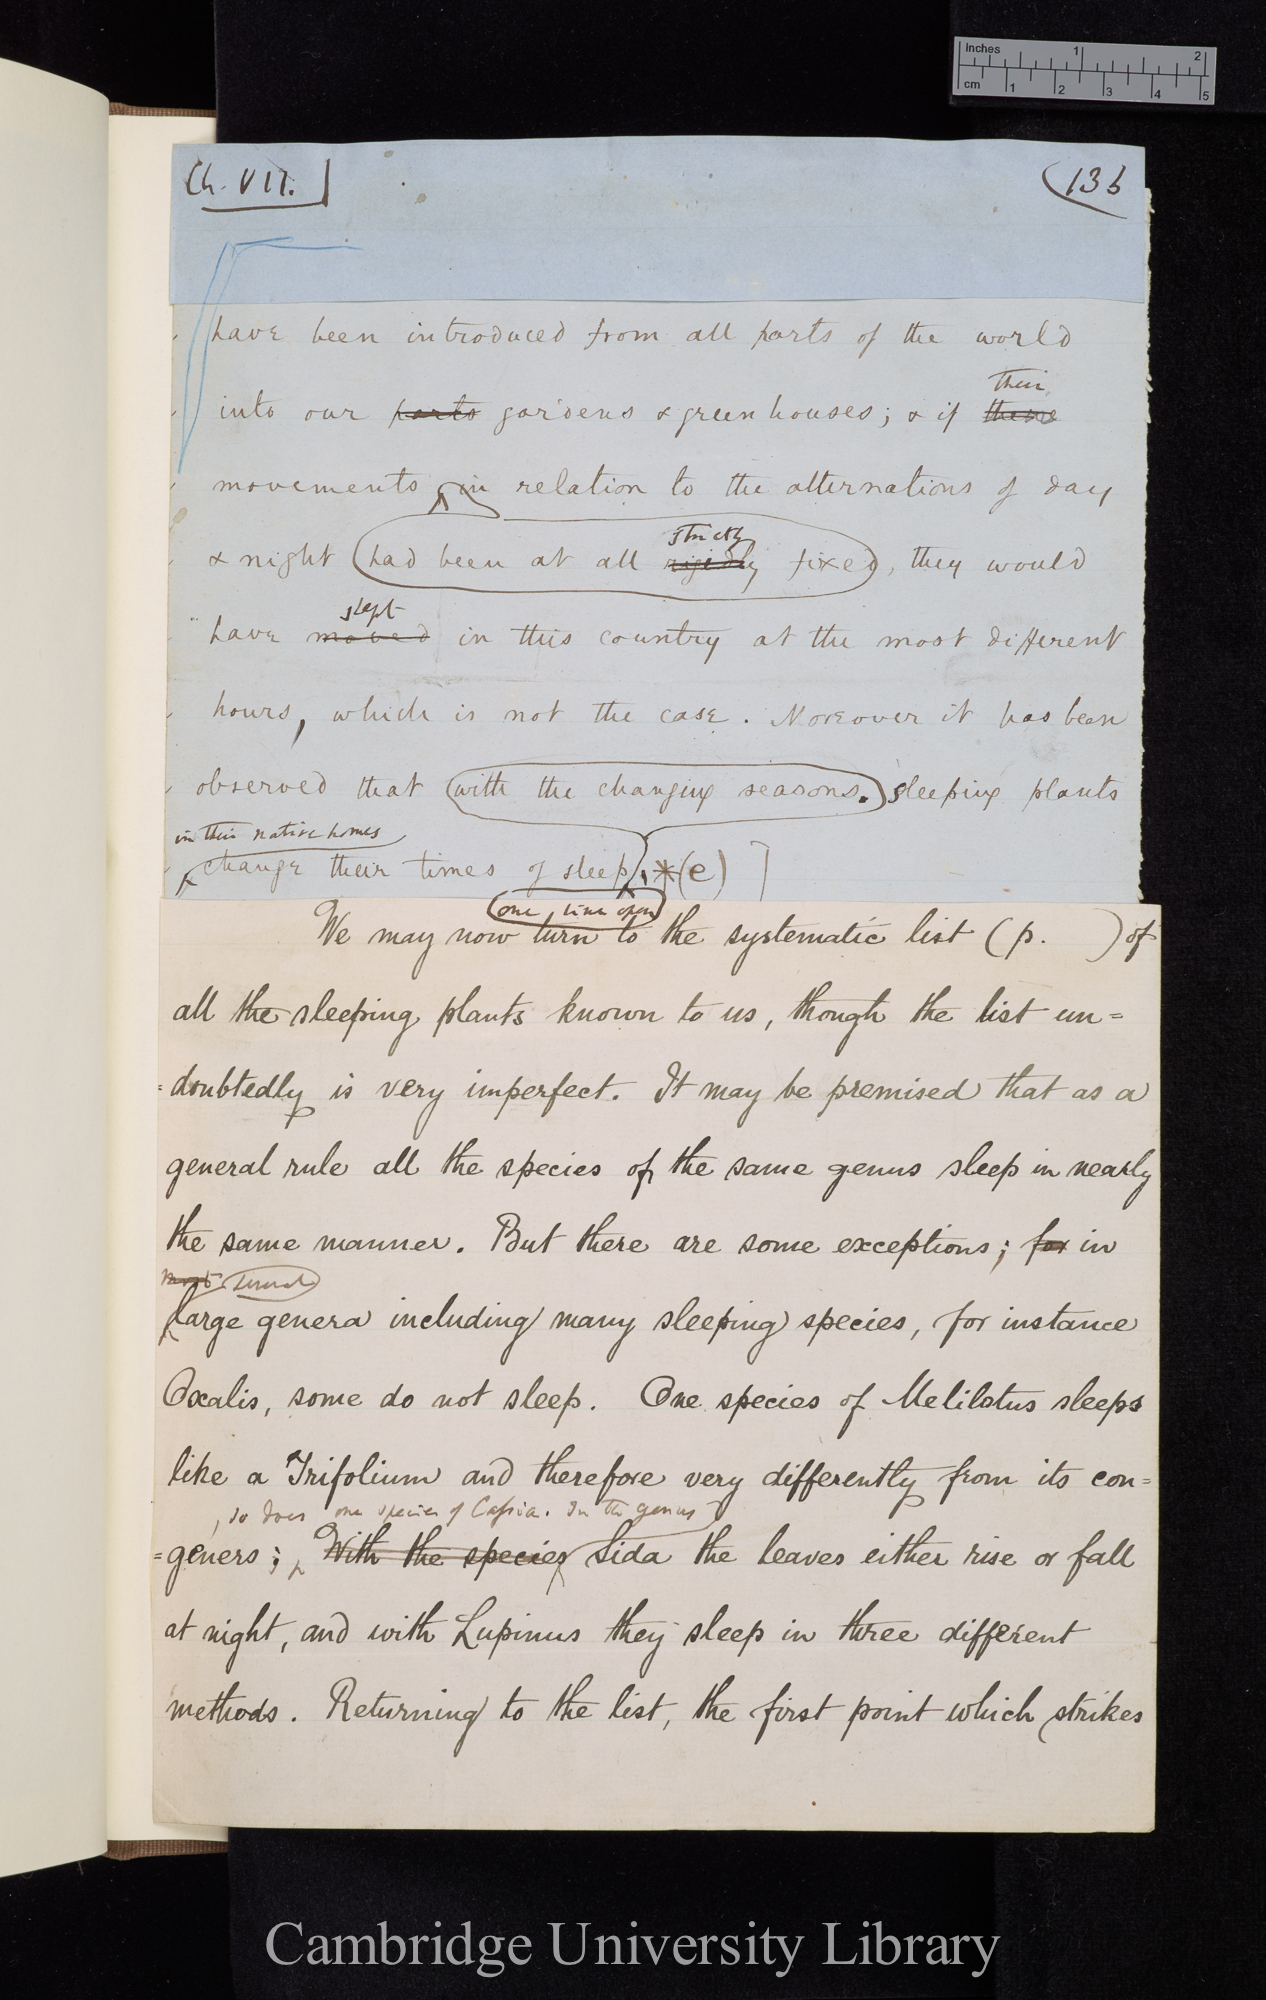 Inches 1 2
cm 1 2 3 4 5
Ch. VII.
136
have been introduced from all parts of the world
their
into our parts gardens & greenhouses; & if these
movements in relation to the alternations of day
strictly
& night had been at all rigidly fixed, they would
slept
have moved in this country at the most different
hours, which is not the case. Moreover it has been
observed that with the changing seasons. sleeping plants
in their native homes
change their times of sleep. *(e) ]
one line open
We may now turn to the systematic list (p. ) of
all the sleeping plants known to us, though the list un=
=doubtedly is very imperfect. It may be premised that as a
general rule all the species of the same genus sleep in nearly
the same manner. But there are some exceptions; for in
most several
large genera including many sleeping species, for instance
Oxalis, some do not sleep. One species of Melilotus sleeps
like a Trifolium and therefore very differently from its con=
, so does one species of Cassia. In the genus
=geners; With the species Sida the leaves either rise or fall
at night, and with Lupinus they sleep in three different
methods. Returning to the list, the first point which strikes
Cambridge University Library